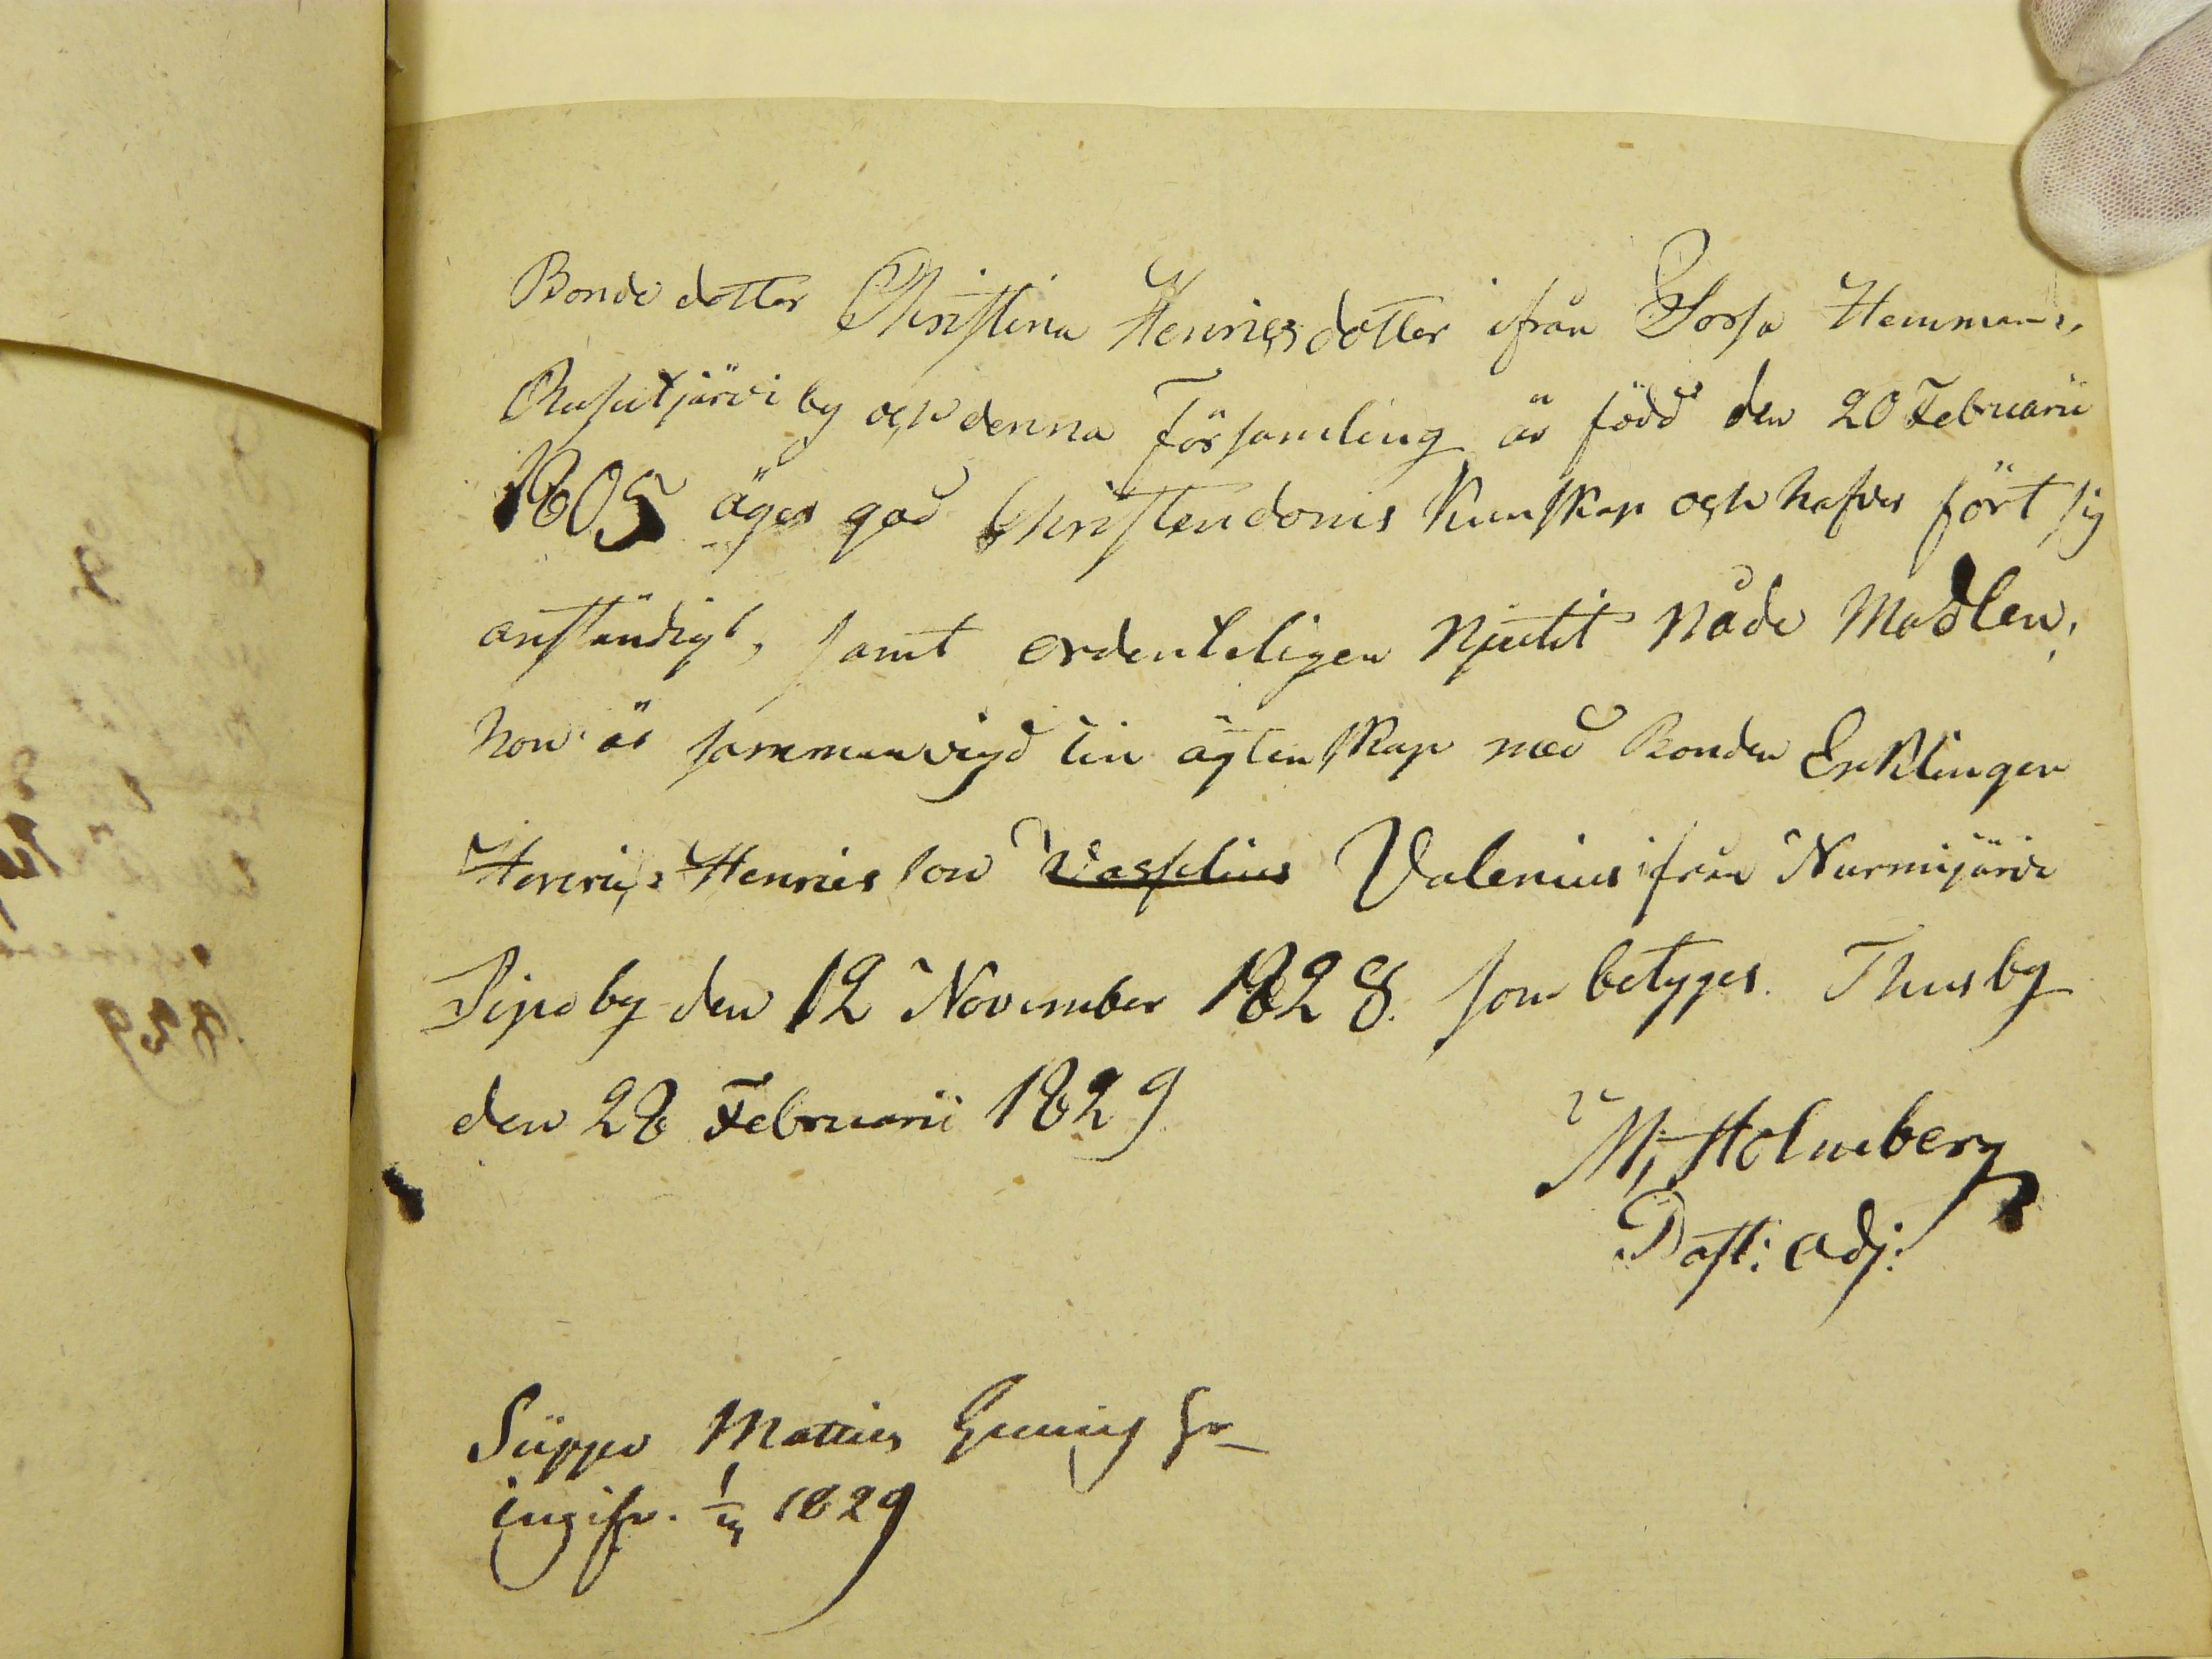 Bonde dotter Christina Henricsdotter ifrån Sorsa Hemman,
Rusutjärvi by och denna Församling är född den 20 Februarii
1805 äger god Christendoms Kunskap och hafver fört sig
anständigt, samt ordenteligen Njutit Nåde Medlen,
hon är sammanvigd tin ägtenskap med Bonden Enklingen
Henric Henrics son Vasselius Valenius ifrån Nurmijärvi
by den 12 November 1828. som betyges. Thusby
den 28 Februarii 1829
M, Holmberg
Past: adj:
Matties
1829